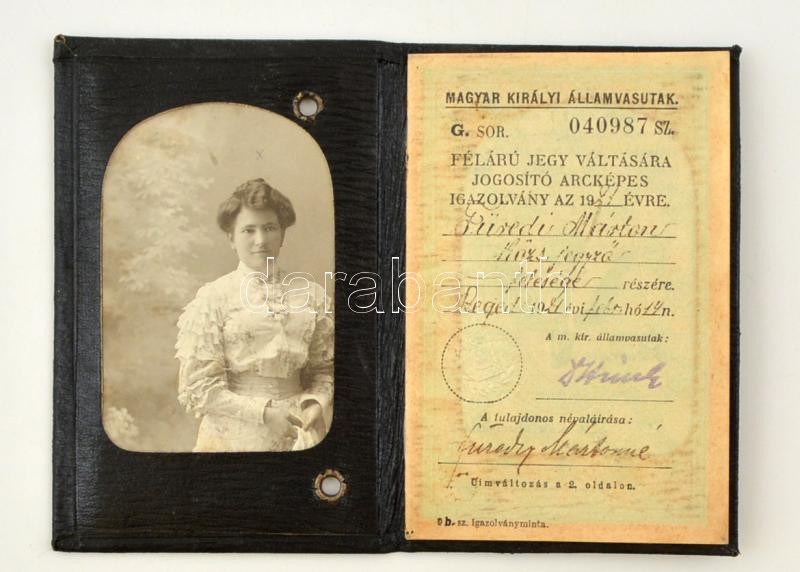 MAGYAR KIRÁLYI ÁLLAMVASUTAK.
G. SOR. 040987 SZ.
FÉLÁRÚ JEGY VÁLTÁSÁRA
JOGOSÍTÓ ARCKÉPES
IGAZOLVÁNY AZ 1921 ÉVRE.
Füredi Márton
közs. jegyző
felesége részére.
Szeged 1921 évi febr. hó 14 n.
A m. kir. államvasutak:
A tulajdonos névaláírása:
Füredy Mártonné
Címváltozás a 2. oldalon.
9 b.-sz. Igazolványminta.
darabanth